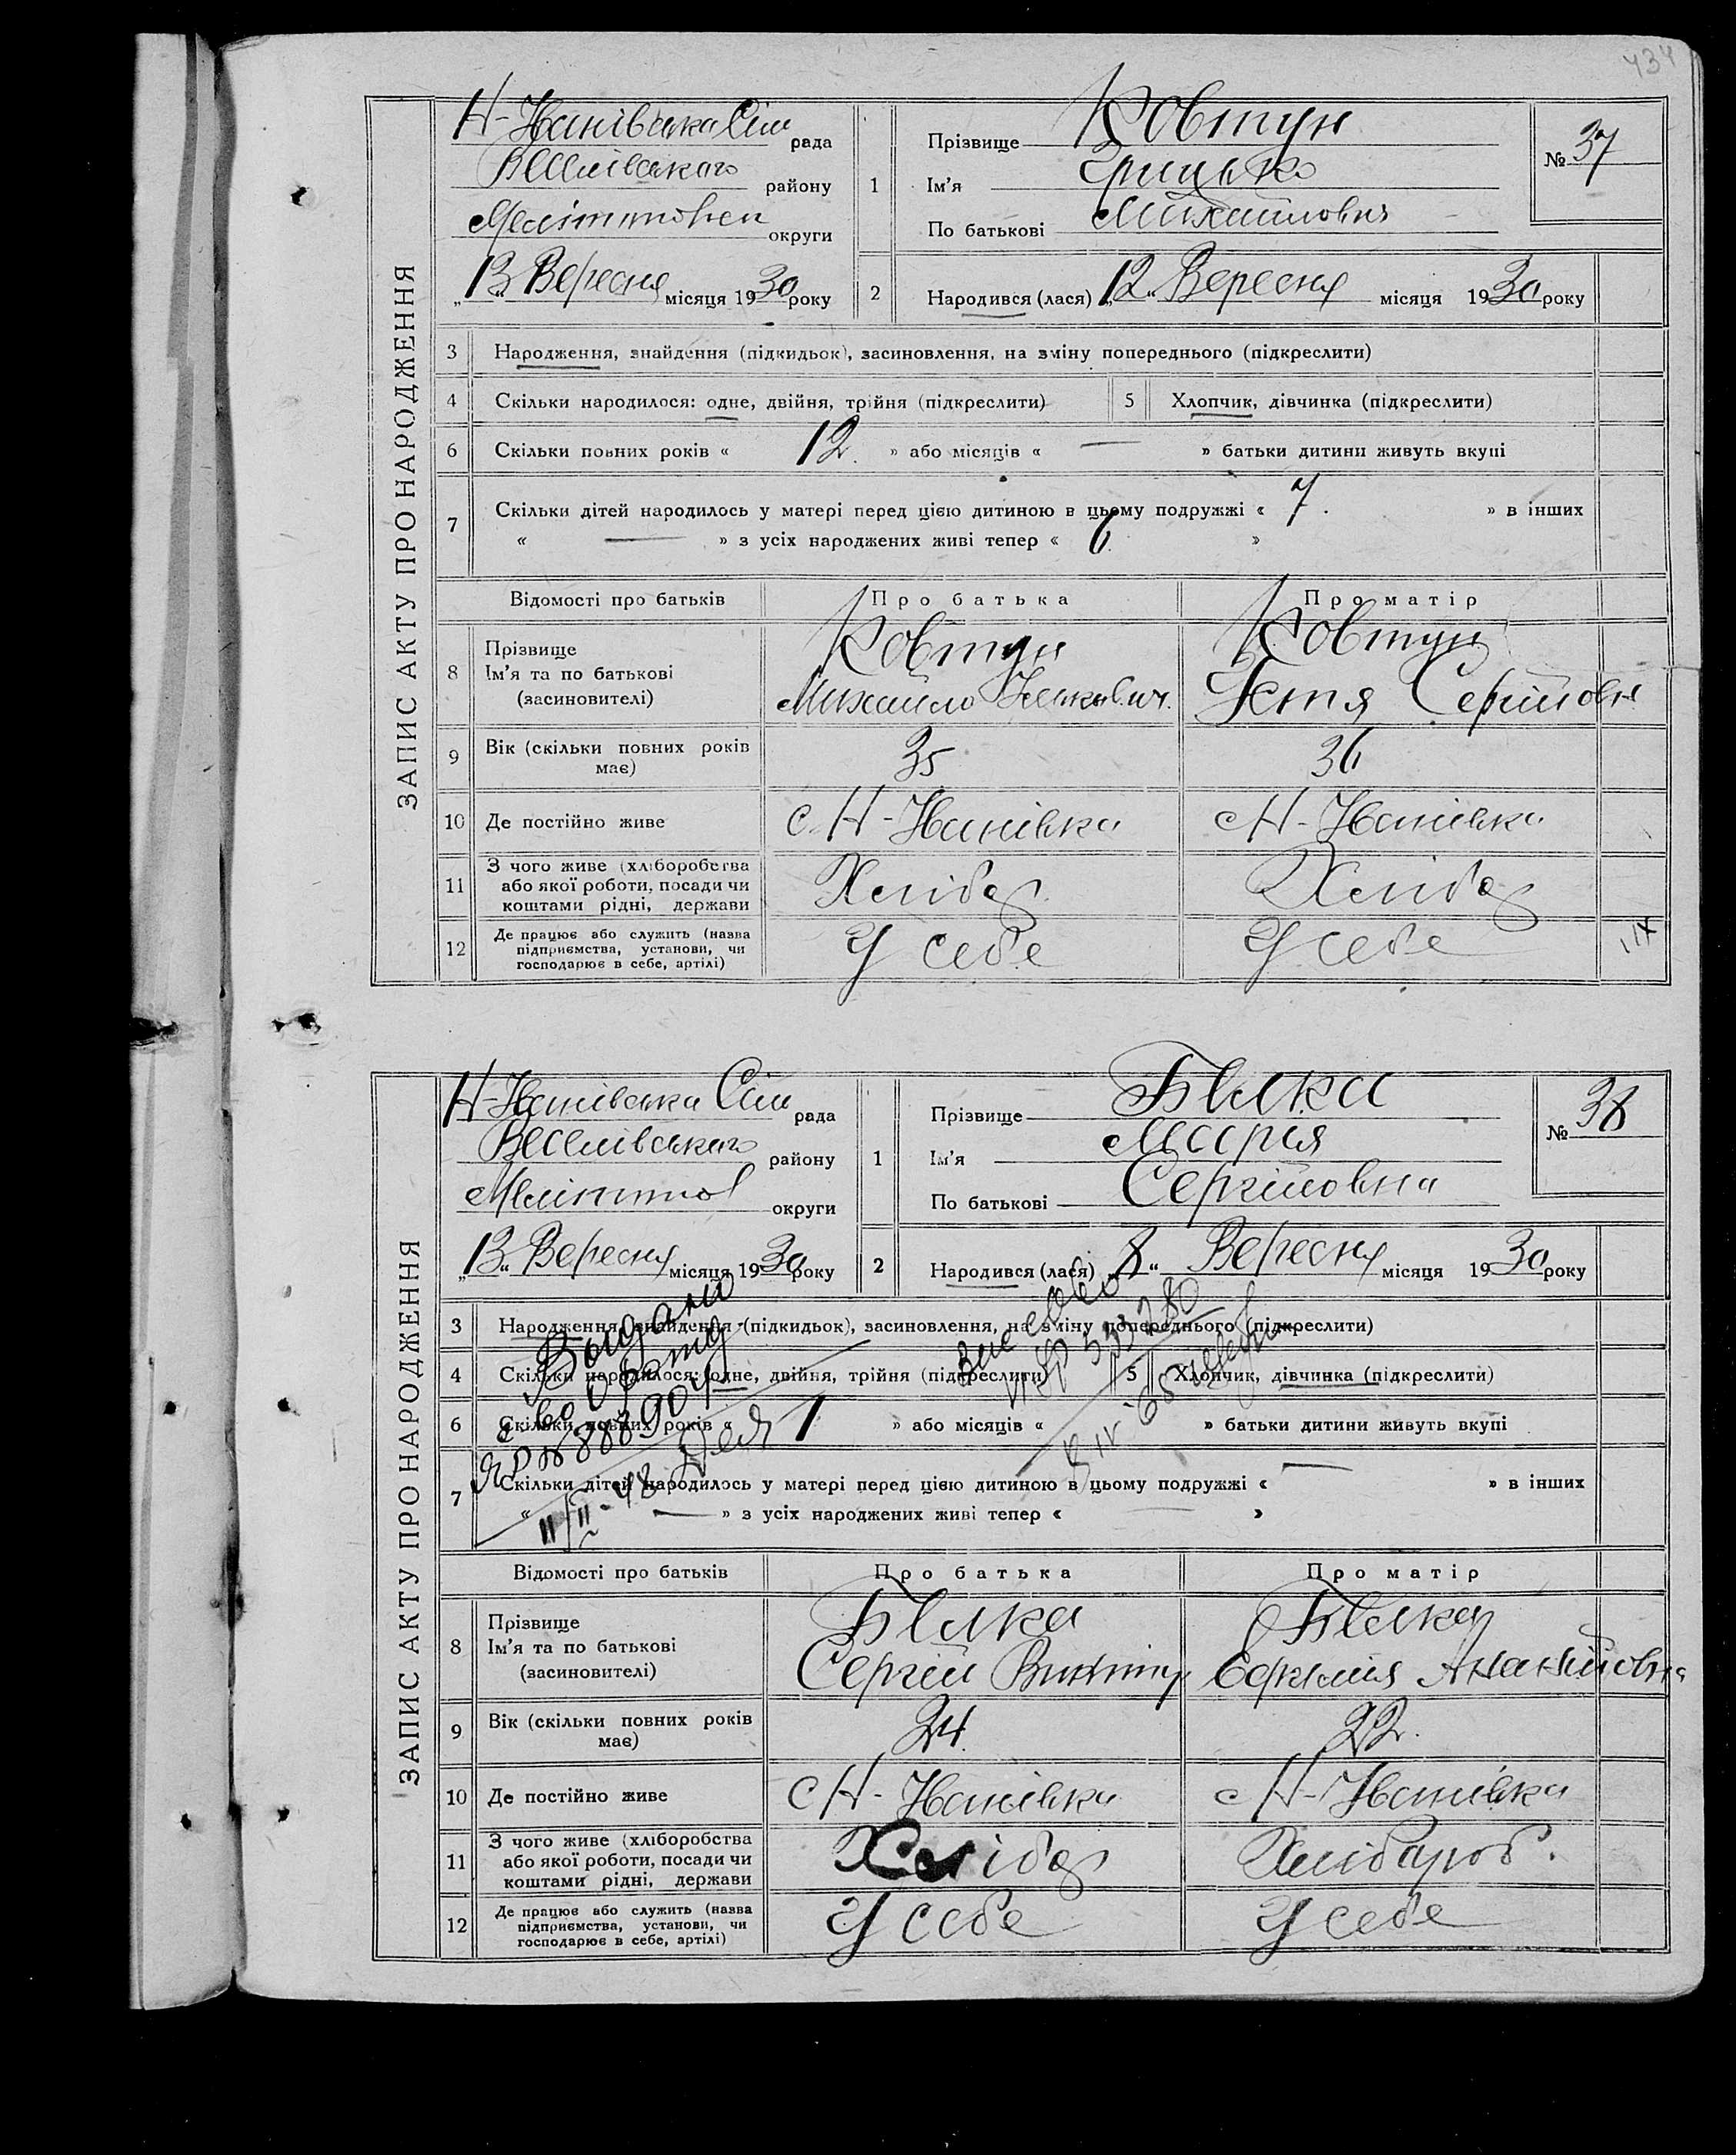 434
ЗАПИС АКТУ ПРО НАРОДЖЕННЯ
Н-Іванівська Сіл рада
Веселівського району
Мелітопол округи
„13“ Вересня місяця 1930 року
1 Прізвище Ковтун
Ім'я Грицько
По батькові Михайлович
№ 37
2 Народився (лася) „12“ Вересня місяця 1930 року
3 Народження, знайдення (підкидьок), засиновлення, на зміну попереднього (підкреслити)
4 Скільки народилося: одне, двійня, трійня (підкреслити) 5 Хлопчик, дівчинка (підкреслити)
6 Скільки повних років « 12 » або місяців « — » батьки дитини живуть вкупі
7 Скільки дітей народилось у матері перед цією дитиною в цьому подружжі « 7. » в інших
« — » з усіх народжених живі тепер « 6 »
Відомості про батьків Про батька Про матір
8 Прізвище Ковтун Ковтун
Ім'я та по батькові Михайло Сергіївна
(засиновителі)
9 Вік (скільки повних років має) 35 36
10 Де постійно живе с. Н-Іванівка с Н-Іванівка
11 З чого живе (хліборобства
або якої роботи, посади чи
коштами рідні, держави Хлібор Хлібор
12 Де працює або служить (назва
підприємства, установи, чи
господарює в себе, артілі) У себе У себе
ЗАПИС АКТУ ПРО НАРОДЖЕННЯ
Н-Іванівська Сіл рада
Веселівського району
Мелітопол округи
„13“ Вересня місяця 1930 року
1 Прізвище Білка
Ім'я Марія
По батькові Сергійовна
№ 38
2 Народився (лася) „8“ Вересня місяця 1930 року
3 Народження, знайдення (підкидьок), засиновлення, на зміну попереднього (підкреслити)
4 Скільки народилося: одне, двійня, трійня (підкреслити) 5 Хлопчик, дівчинка (підкреслити)
6 Скільки повних років « 1 » або місяців « » батьки дитини живуть вкупі
7 Скільки дітей народилось у матері перед цією дитиною в цьому подружжі « — » в інших
« — » з усіх народжених живі тепер « »
Выдано
св-во
№ 888904
11/II-48
533280
Відомості про батьків Про батька Про матір
8 Прізвище Білка Білка
Ім'я та по батькові Сергій Ананійовна
(засиновителі)
9 Вік (скільки повних років має) 24. 22.
10 Де постійно живе с Н-Іванівка с Н-Іванівка
11 З чого живе (хліборобства
або якої роботи, посади чи
коштами рідні, держави Хлібор Хлібароб.
12 Де працює або служить (назва
підприємства, установи, чи
господарює в себе, артілі) У себе У себе